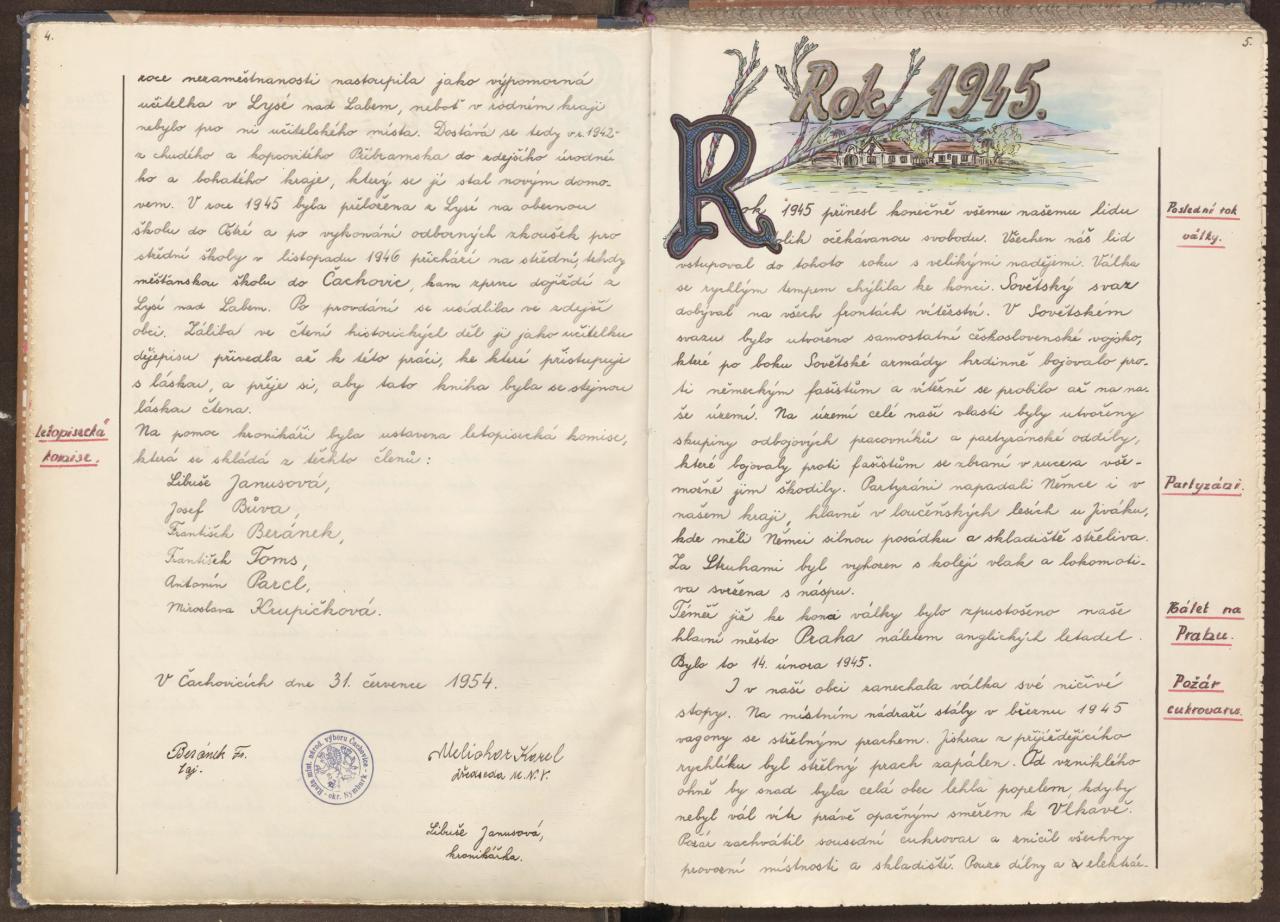 4.
roce nezaměstnanosti nastoupila jako výpomocná
učitelka v Lysé nad Labem, neboť v rodném kraji
nebylo pro ni učitelského místa. Dostává se tedy v r. 1942
z chudého a kopcovitého Příbramska do zdejšího úrodné-
ho a bohatého kraje, který se jí stal novým domo-
vem. V roce 1945 byla přeložena z Lysé na obecnou
školu do Ostré a po vykonání odborných zkoušek pro
střední školy v listopadu 1946 přichází na střední, tehdy
měšťanskou školu do Čachovic, kam zprvu dojíždí z
Lysé nad Labem. Po provdání se usídlila ve zdejší
obci. Záliba ve čtení historických děl ji jako učitelku
dějepisu přivedla až k této práci, ke které přistupuje
s láskou, a přeje si, aby tato kniha byla se stejnou
láskou čtena.
Letopisecká
komise.
Na pomoc kronikáři byla ustavena letopisecká komise,
která se skládá z těchto členů:
Libuše Janusová,
Josef Bůva,
František Beránek,
František Toms,
Antonín Parcl,
Miroslava Krupičková.
V Čachovicích dne 31. července 1954.
Beránek Fr.
taj.
Rada míst. národ. výboru Čachovice
okr. Nymburk
Melichar Karel
předseda M.N.V.
Libuše Janusová,
kronikářka.
5.
Rok 1945.
Rok 1945 přinesl konečně všemu našemu lidu
tolik očekávanou svobodu. Všechen náš lid
vstupoval do tohoto roku s velikými nadějemi. Válka
se rychlým tempem chýlila ke konci. Sovětský svaz
dobýval na všech frontách vítězství. V Sovětském
svazu bylo utvořeno samostatní československé vojsko,
které po boku Sovětské armády hrdinně bojovalo pro-
ti německým fašistům a vítězně se probilo až na na-
še území. Na území celé naší vlasti byly utvořeny
skupiny odbojových pracovníků a partyzánské oddíly,
které bojovaly proti fašistům se zbraní v ruce a vše-
možně jim škodily. Partyzáni napadali Němce i v
našem kraji, hlavně v loučeňských lesích u Jíváku,
kde měli Němci silnou posádku a skladiště střeliva.
Za Struhami byl vyhozen s kolejí vlak a lokomoti-
va svržena s náspu.
Téměř již ke konci války bylo zpustošeno naše
hlavní město Praha náletem anglických letadel.
Bylo to 14. února 1945.
I v naší obci zanechala válka své ničivé
stopy. Na místním nádraží stály v březnu 1945
vagony se střelným prachem. Jiskrou z přijíždějícího
rychlíku byl střelný prach zapálen. Od vzniklého
ohně by snad byla celá obec lehla popelem, kdyby
nebyl vál vítr právě opačným směrem k Vlkavě.
Požár zachvátil sousední cukrovar a zničil všechny
provozní místnosti a skladiště. Pouze dílny a elektrár-
Poslední rok
války.
Partyzáni.
Nálet na
Prahu.
Požár
cukrovaru.